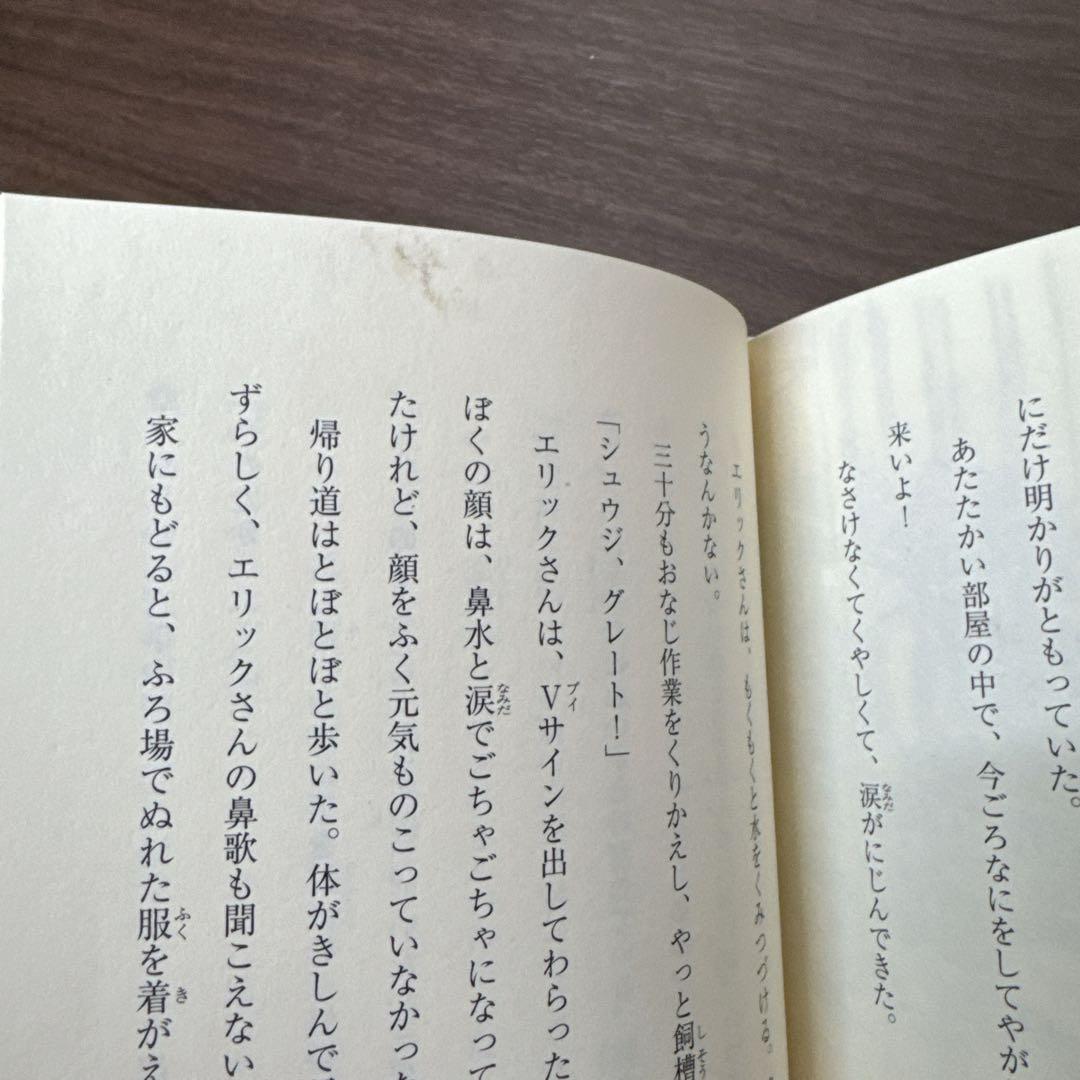 にだけ明かりがともっていた。
あたたかい部屋の中で、今ごろなにをしてやが
来いよ！
なさけなくてくやしくて、涙がにじんできた。
エリックさんは、もくもくと水をくみつづける。
うなんかない。
三十分もおなじ作業をくりかえし、やっと飼槽
「シュウジ、グレート！」
エリックさんは、Vサインを出してわらった
ぼくの顔は、鼻水と涙でごちゃごちゃになって
たけれど、顔をふく元気ものこっていなかった
帰り道はとぼとぼと歩いた。体がきしんで
ずらしく、エリックさんの鼻歌も聞こえない
家にもどると、ふろ場でぬれた服を着がえ